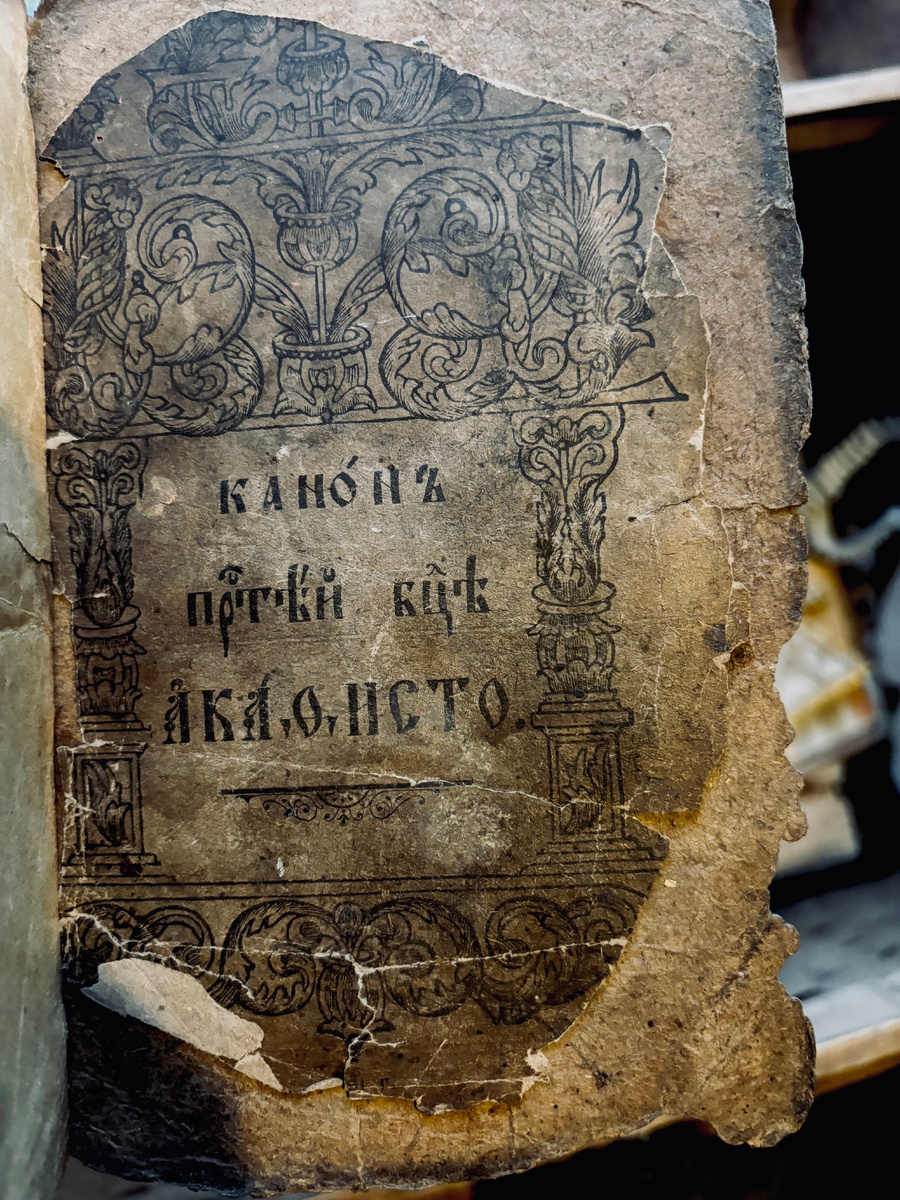 кано́нъ
прⷭ҇тѣ́й бц҃ѣ
а҆ка́ѳисто.